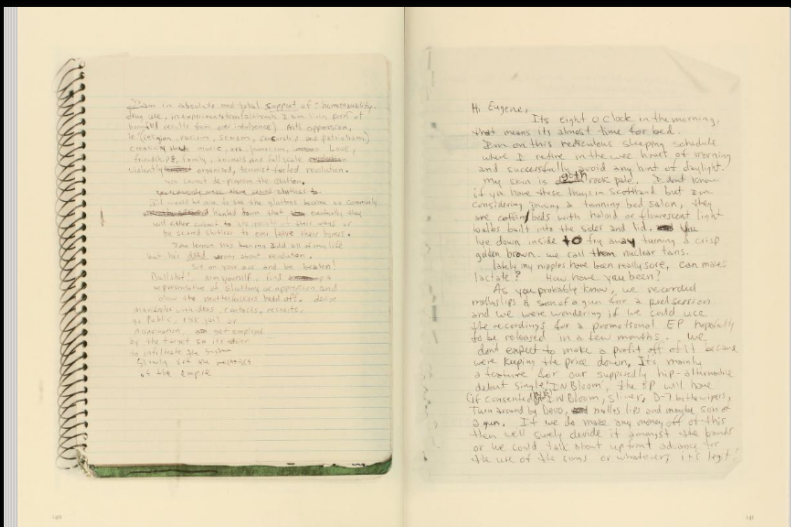 I am in absolute and total support of: homosexuality,
drug use, in experimentation (although I am living proof of
harmful results from over indulgence) Anti oppression,
ie (religion, racism, sexism, censorship and patriotism)
creativity music, art, journalism, love,
friendships, family, animals and full scale
violently organized, terrorist-fueled revolution.
you cannot de-program the Glutton.
It would be nice to see the gluttons become so commonly
hunted down that eventually they
will either submit to the opposite of their ways or
be scared shitless to ever leave their homes.
John lennon Has been my Idol all of my life
but he's dead wrong about revolution.
sit on your ass and be beaten!
Bullshit! arm yourself, find a
representative of gluttony or oppression and
blow the motherfuckers head off. design
manifesto with ideas, contacts, recruits,
go public, risk jail or
assassination, get employed
by the target so its easier
to infiltrate the system
of the Empire
Hi Eugene,
Its eight o clock in the morning,
that means its almost time for bed.
Im on this rediculous sleeping schedule
where I retire in the wee hours of morning
and successfully avoid any hint of daylight.
my skin is goth rock pale. I dont know
if ya have these things in Scotland but Im
considering joining a tanning bed salon, they
are coffin beds with haloid or flourescent light
bulbs built into the sides and lid. You
lye down inside to try away turning a crisp
golden brown. we call them nuclear tans.
lately my nipples have been really sore, can males
lactate? How have you been?
As you probably know, we recorded
mollys lips & son of a gun for a peel session
and we were wondering if we could use
the recordings for a promotional EP hopefully
to be released in a few months. We
dont expect to make a profit off of it because
were keeping the price down. Its mainly
a feature for our supposedly hip-alternative
debut single "IN Bloom", the EP will have
(if consented by you) IN Bloom, sliver, D-7 by the wipers,
Turn around by Devo, mollys lips and maybe son of
a gun. If we do make any money off of this
then well surely divide it amongst the bands
or we could talk about upfront advance for
the use of the songs or whatever, its legit